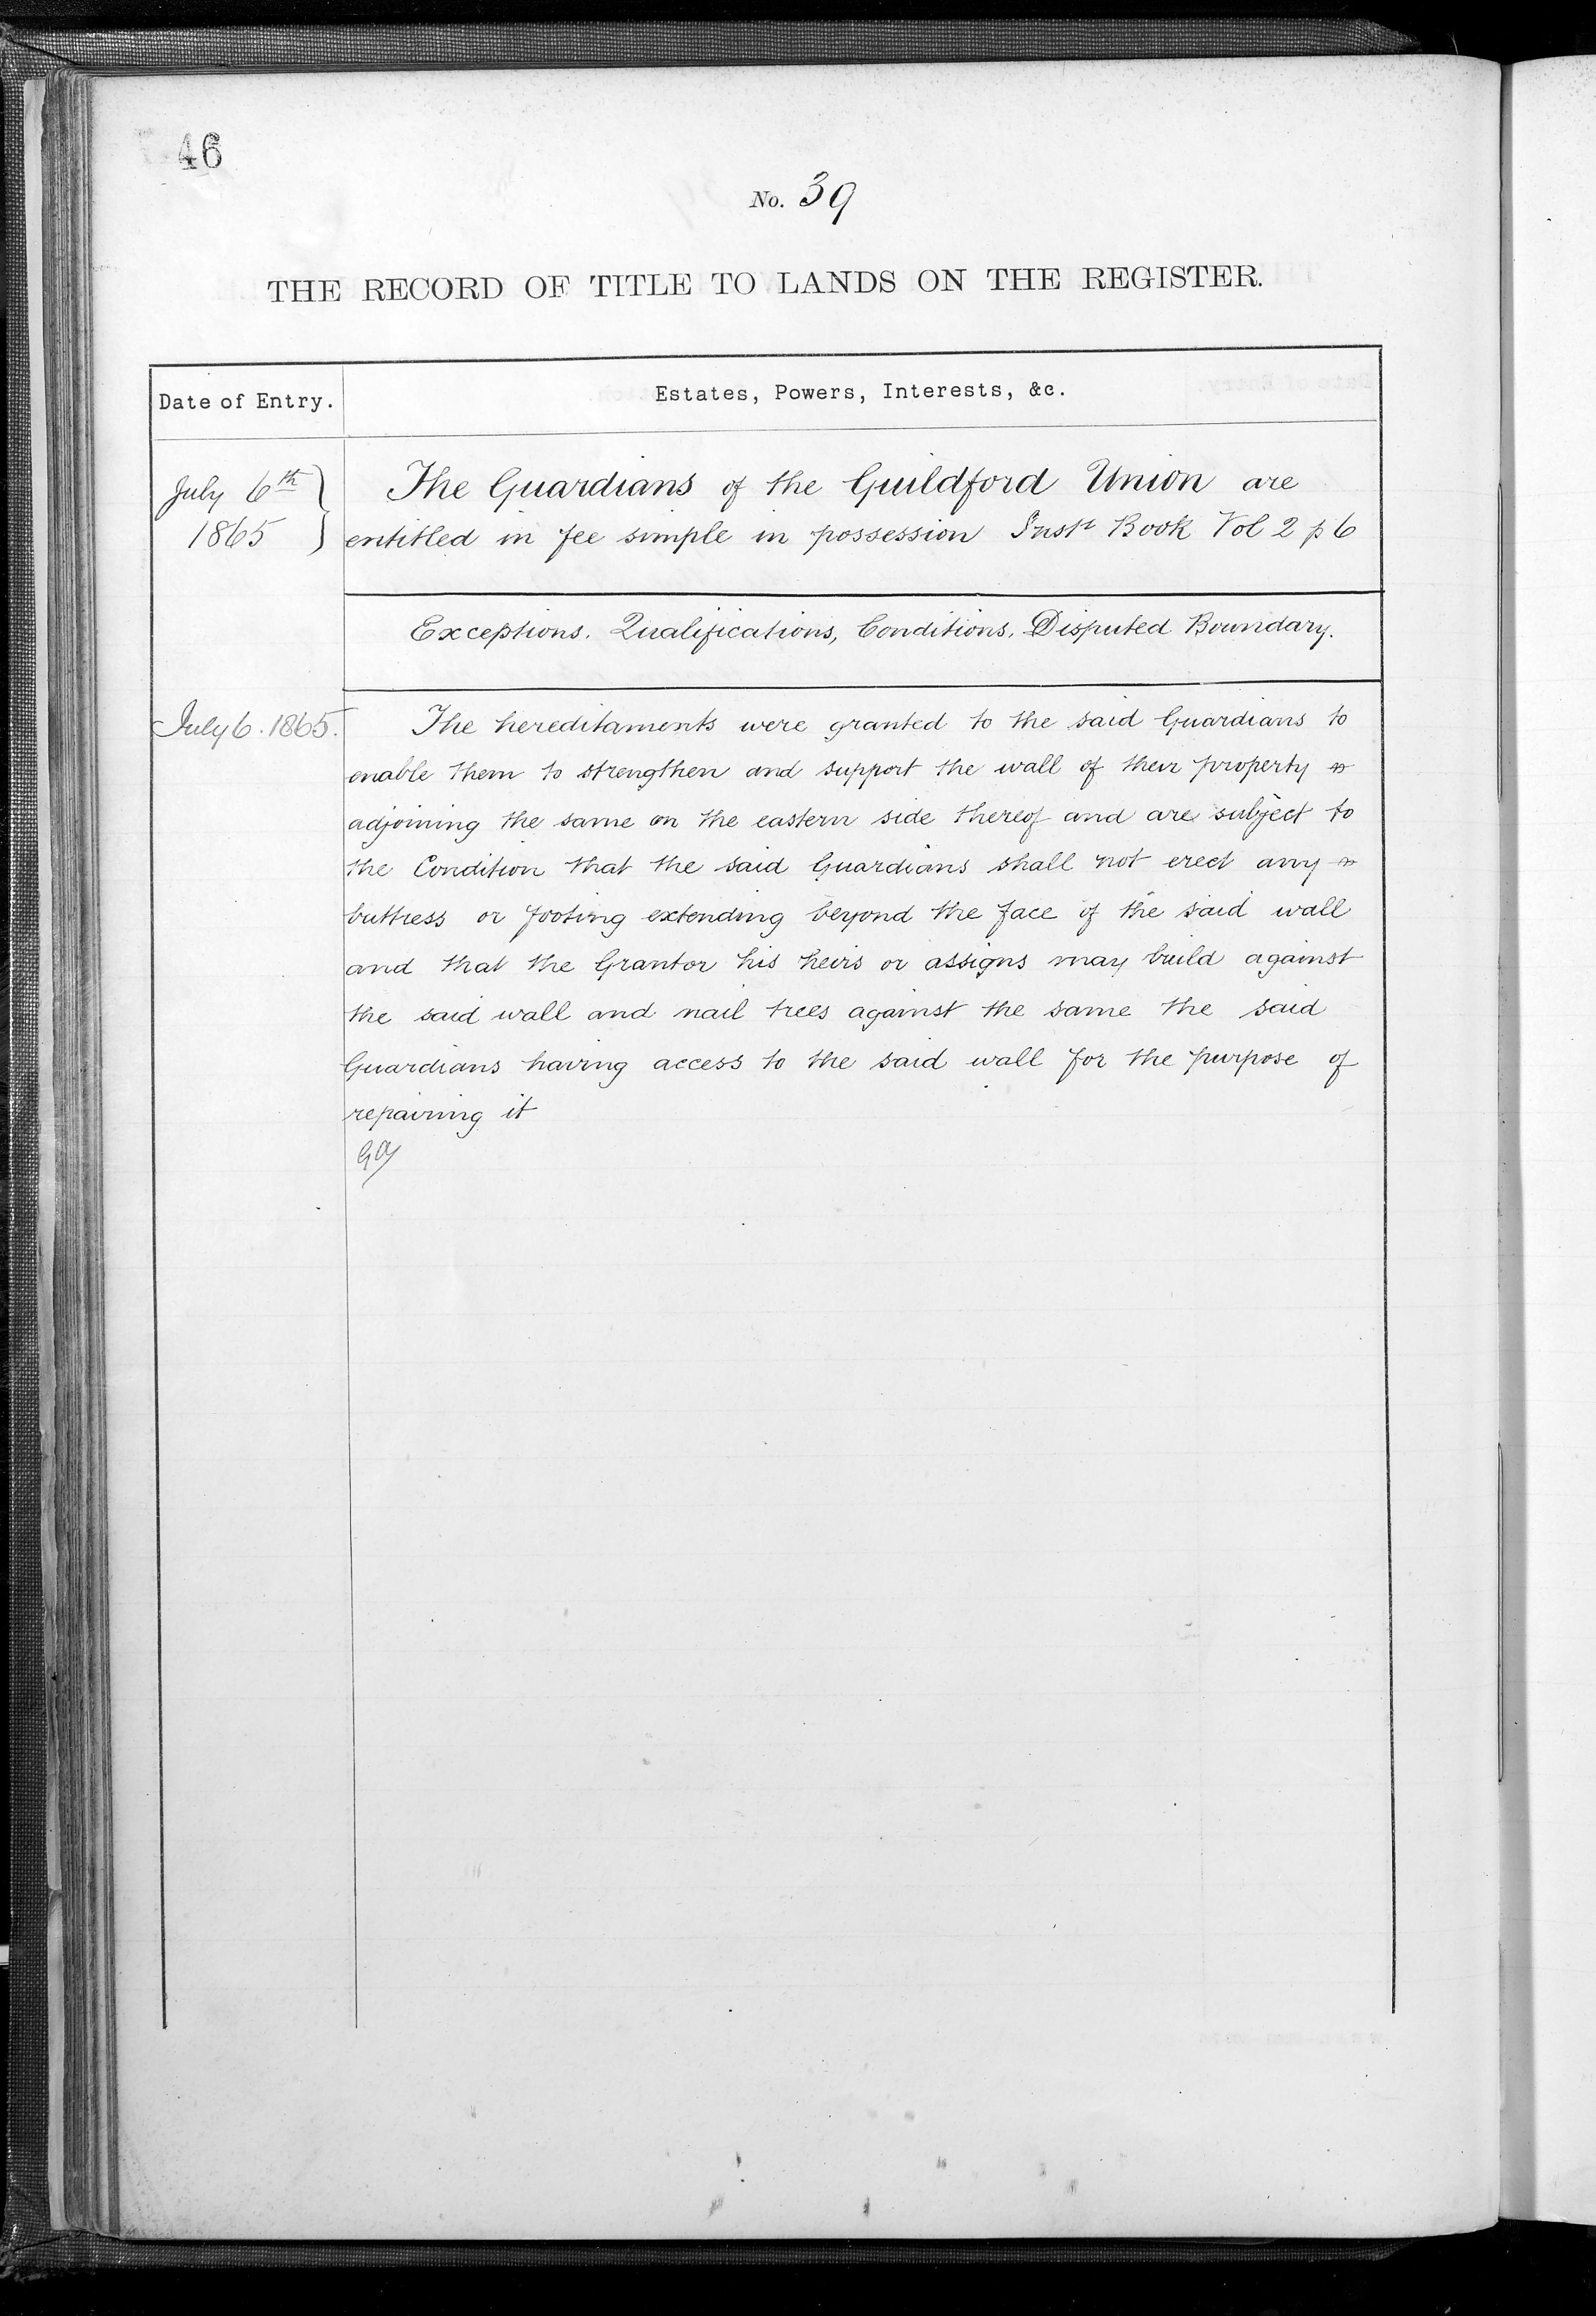 46
No. 39
THE RECORD OF TITLE TO LANDS ON THE REGISTER.
Date of Entry.
Estates, Powers, Interests, &c.
July 6th
1865
The Guardians of the Guildford Union are
entitled in fee simple in possession Inst Book Vol 2 p 6
Exceptions, Qualifications, Conditions, Disputed Boundary.
July 6. 1865.
The hereditaments were granted to the said Guardians to
enable them to strengthen and support the wall of their property
adjoining the same on the eastern side thereof and are subject to
the Condition that the said Guardians shall not erect any
buttress or footing extending beyond the face of the said wall
and that the Grantor his heirs or assigns may build against
the said wall and nail trees against the same the said
Guardians having access to the said wall for the purpose of
repairing it